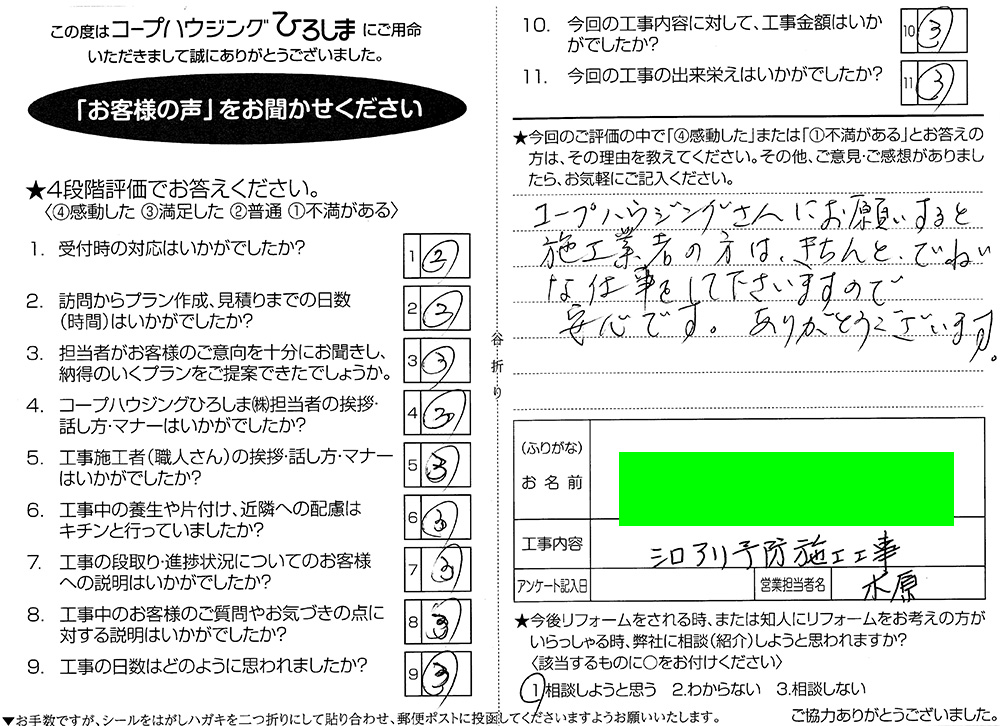 この度はコープハウジングひろしまにご用命
いただきまして誠にありがとうございました。
「お客様の声」をお聞かせください
★4段階評価でお答えください。
〈④感動した ③満足した ②普通 ①不満がある〉
1. 受付時の対応はいかがでしたか?
1 ②
2. 訪問からプラン作成、見積りまでの日数
(時間)はいかがでしたか?
2 ③
3. 担当者がお客様のご意向を十分にお聞きし、
納得のいくプランをご提案できたでしょうか。
3 ③
4. コープハウジングひろしま㈱担当者の挨拶・
話し方・マナーはいかがでしたか?
4 ③
5. 工事施工者(職人さん)の挨拶・話し方・マナー
はいかがでしたか?
5 ③
6. 工事中の養生や片付け、近隣への配慮は
キチンと行っていましたか?
6 ③
7. 工事の段取り・進捗状況についてのお客様
への説明はいかがでしたか?
7 ③
8. 工事中のお客様のご質問やお気づきの点に
対する説明はいかがでしたか?
8 ③
9. 工事の日数はどのように思われましたか?
9 ③
▼お手数ですが、シールをはがしハガキを二つ折りにして貼り合わせ、郵便ポストに投函してくださいますようお願いいたします。
谷折り
10. 今回の工事内容に対して、工事金額はいか
がでしたか?
10 ③
11. 今回の工事の出来栄えはいかがでしたか?
11 ③
★今回のご評価の中で「④感動した」または「①不満がある」とお答えの
方は、その理由を教えてください。その他、ご意見・ご感想がありまし
たら、お気軽にご記入ください。
コープハウジングさんにお願いすると
施工業者の方は、きちんと、でねい
な仕事をして下さいますので
安心です。ありがとうございます。
(ふりがな)
お名前
工事内容
シロアリ予防施工工事
アンケート記入日
営業担当者名
水原
★今後リフォームをされる時、または知人にリフォームをお考えの方が
いらっしゃる時、弊社に相談(紹介)しようと思われますか?
〈該当するものに○をお付けください〉
①相談しようと思う 2.わからない 3.相談しない
ご協力ありがとうございました。